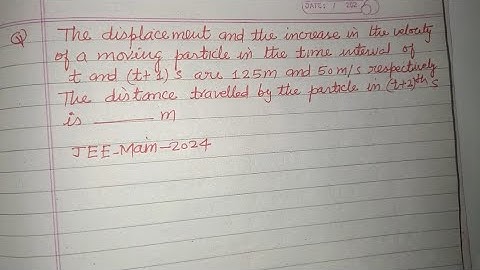 DATE: / 202
Q) The displacement and the increase in the velocity
of a moving particle in the time interval of
t and (t+1)s are 125m and 50m/s respectively
The distance travelled by the particle in (t+2)th s
is ______ m
JEE-Main-2024